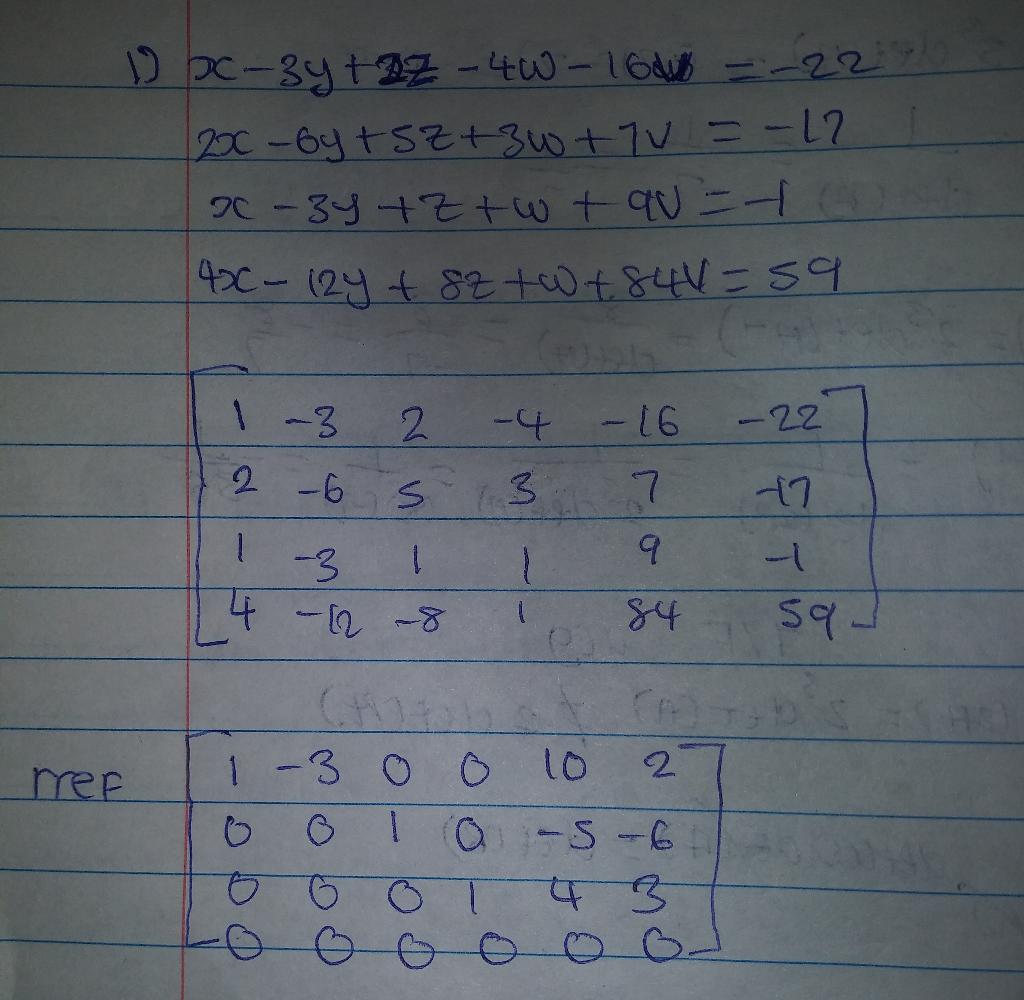 1) x - 3y + 2z - 4w - 16v = -22
2x - 6y + 5z + 3w + 7v = -17
x - 3y + z + w + 9v = -1
4x - 12y + 8z + w + 84v = 59
1 -3 2 -4 -16 -22
2 -6 5 3 7 -17
1 -3 1 1 9 -1
4 -12 -8 1 84 59
rref 1 -3 0 0 10 2
0 0 1 0 -5 -6
0 0 0 1 4 3
0 0 0 0 0 0